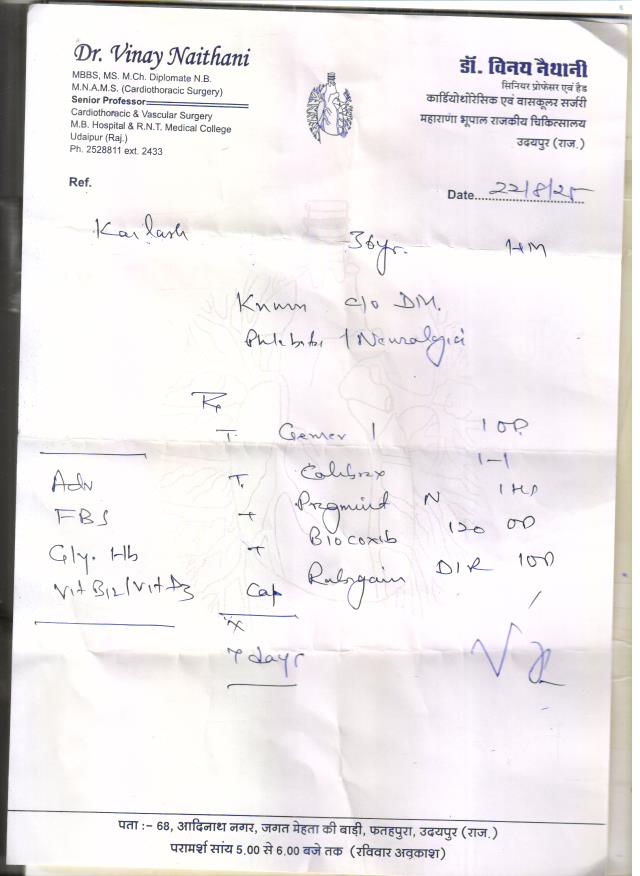 Dr. Vinay Naithani
MBBS, MS. M.Ch. Diplomate N.B.
M.N.A.M.S. (Cardiothoracic Surgery)
Senior Professor
Cardiothoracic & Vascular Surgery
M.B. Hospital & R.N.T. Medical College
Udaipur (Raj.)
Ph. 2528811 ext. 2433
डॉ. विनय नैथानी
सिनियर प्रोफेसर एवं हैड
कार्डियोथोरेसिक एवं वासकूलर सर्जरी
महाराणा भूपाल राजकीय चिकित्सालय
उदयपुर (राज.)
Ref.
Date 22/8/25
Kailash 36yr.
c/o DM.
/ Neuralgia
Rx
T. Gemer 1 1 OD
T. 1-1
T N 1 HS
T Biocoxib 120 OD
Cap DSR 1 OD
x
7 days
Adv
FBS
Gly. Hb
Vit B12/Vit D3
पता :– 68, आदिनाथ नगर, जगत मेहता की बाड़ी, फतहपुरा, उदयपुर (राज.)
परामर्श सांय 5.00 से 6.00 बजे तक (रविवार अवकाश)